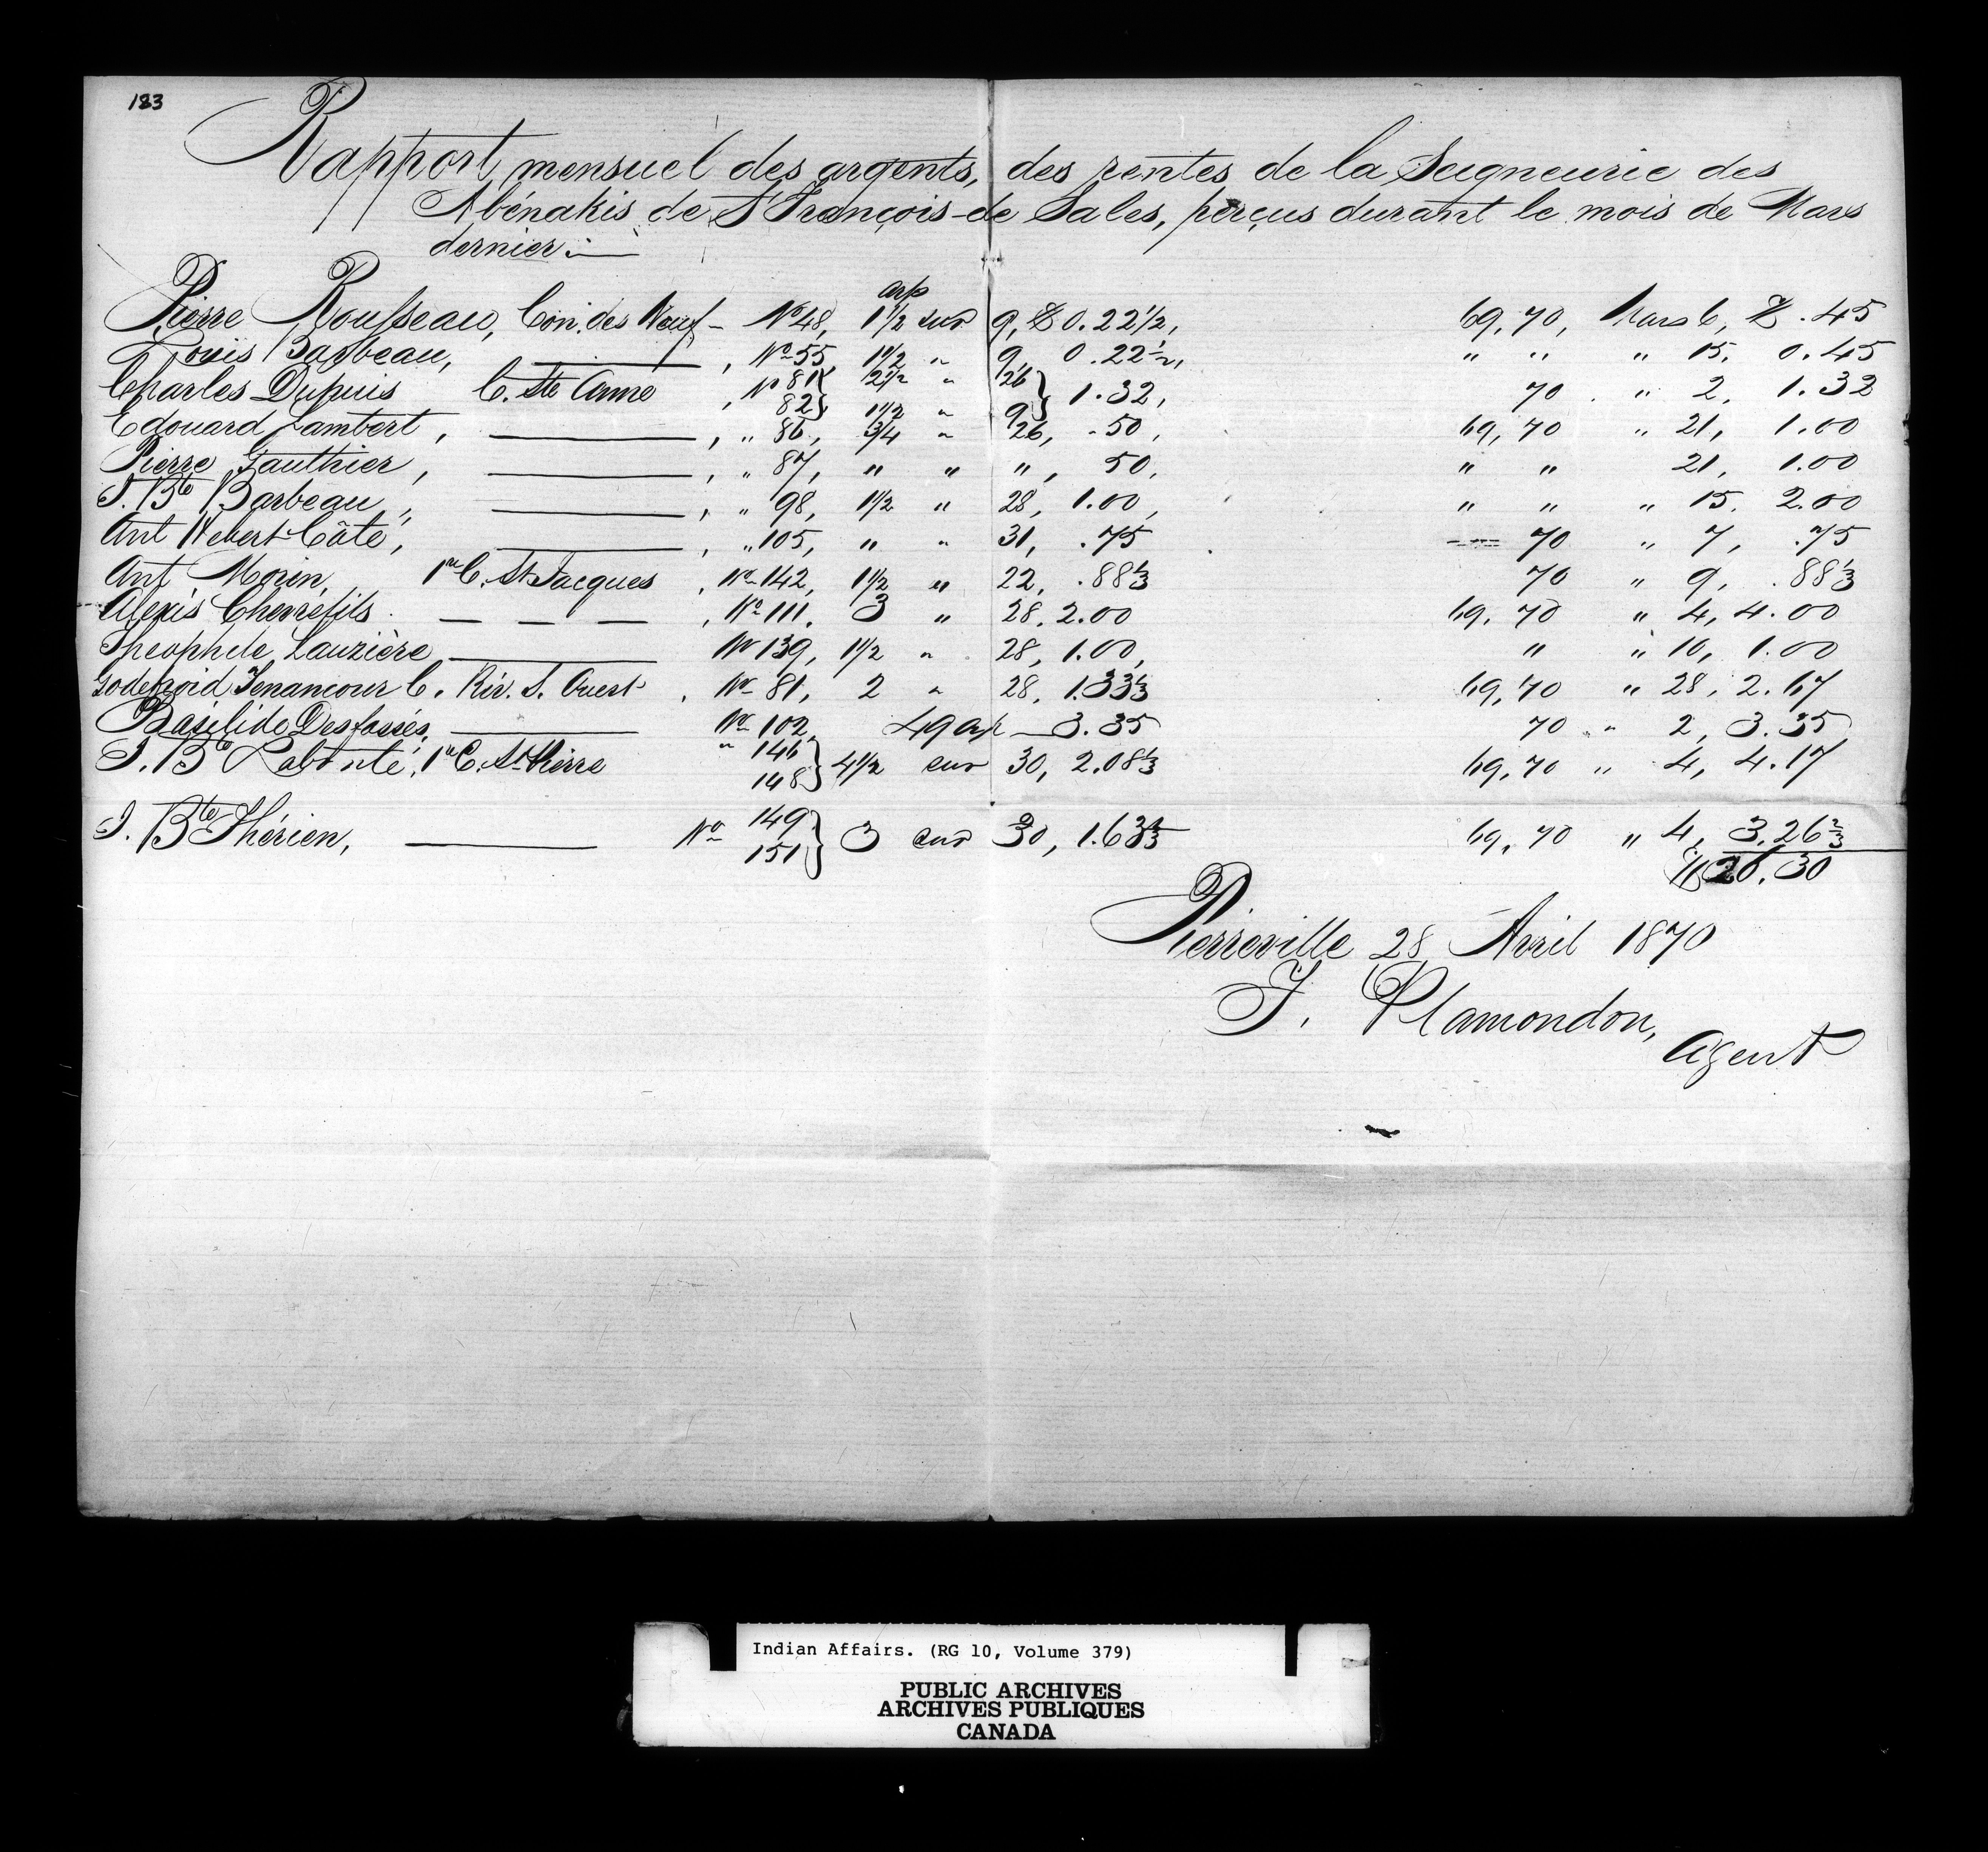 183
Rapport mensuel des argents, des rentes de la Seigneurie des
Abénakis de St François-de Sales, perçus durant le mois de Mars
dernier :—
arp
Pierre Rousseau, Con. des Neuf - No 48, 1 1/2 sur 9, $ 0.22 1/2, 69, 70, Mars 6, $ .45
Louis Barbeau, ——— , No 55 1 1/2 " 9, 0.22 1/2, " " " 15. 0.45
Charles Dupuis C. Ste Anne , No 81 2 1/2 " 26 } 1.32, 70 " 2, 1.32
82 } 1 1/2 " 9
Edouard Lambert, ——— , " 86, 3/4 " 26, .50, 69, 70 " 21, 1.00
Pierre Gauthier, ——— , " 87, " " ", 50, " " 21, 1.00
J. Bte Barbeau, ——— , " 98, 1 1/2 " 28, 1.00, " " " 15. 2.00
Ant Hebert Côté, ——— , " 105, " " 31, .75 70 " 7, .75
Ant Morin, 1re C. St Jacques , No 142, 1 1/2 " 22, .88 1/3 70 " 9, .88 1/3
Alexis Chevrefils. — — — — , No 111. 3 " 28. 2.00 69, 70 " 4, 4.00
Theophile Lauzière ——— No 139, 1 1/2 " 28, 1.00, " " 10, 1.00
Godefroid C. Riv. S. Ouest , No 81, 2 " 28, 1.33 1/3 69, 70 " 28, 2.67
Basilide Desfossés, ——— No 102, 49 ap — 3.35 70 " 2, 3.35
J. Bte Labonté, 1re C. St Pierre " 146 } 4 1/2 sur 30, 2.08 1/3 69, 70 " 4, 4.17
148
J. Bte Thérien, ——— No 149 } 3 sur 30, 1.63 1/3 69, 70 " 4, 3.26 2/3
151
$ 26.30
Pierreville 28 Avril 1870
J. Plamondon,
Agent
Indian Affairs. (RG 10, Volume 379)
PUBLIC ARCHIVES
ARCHIVES PUBLIQUES
CANADA